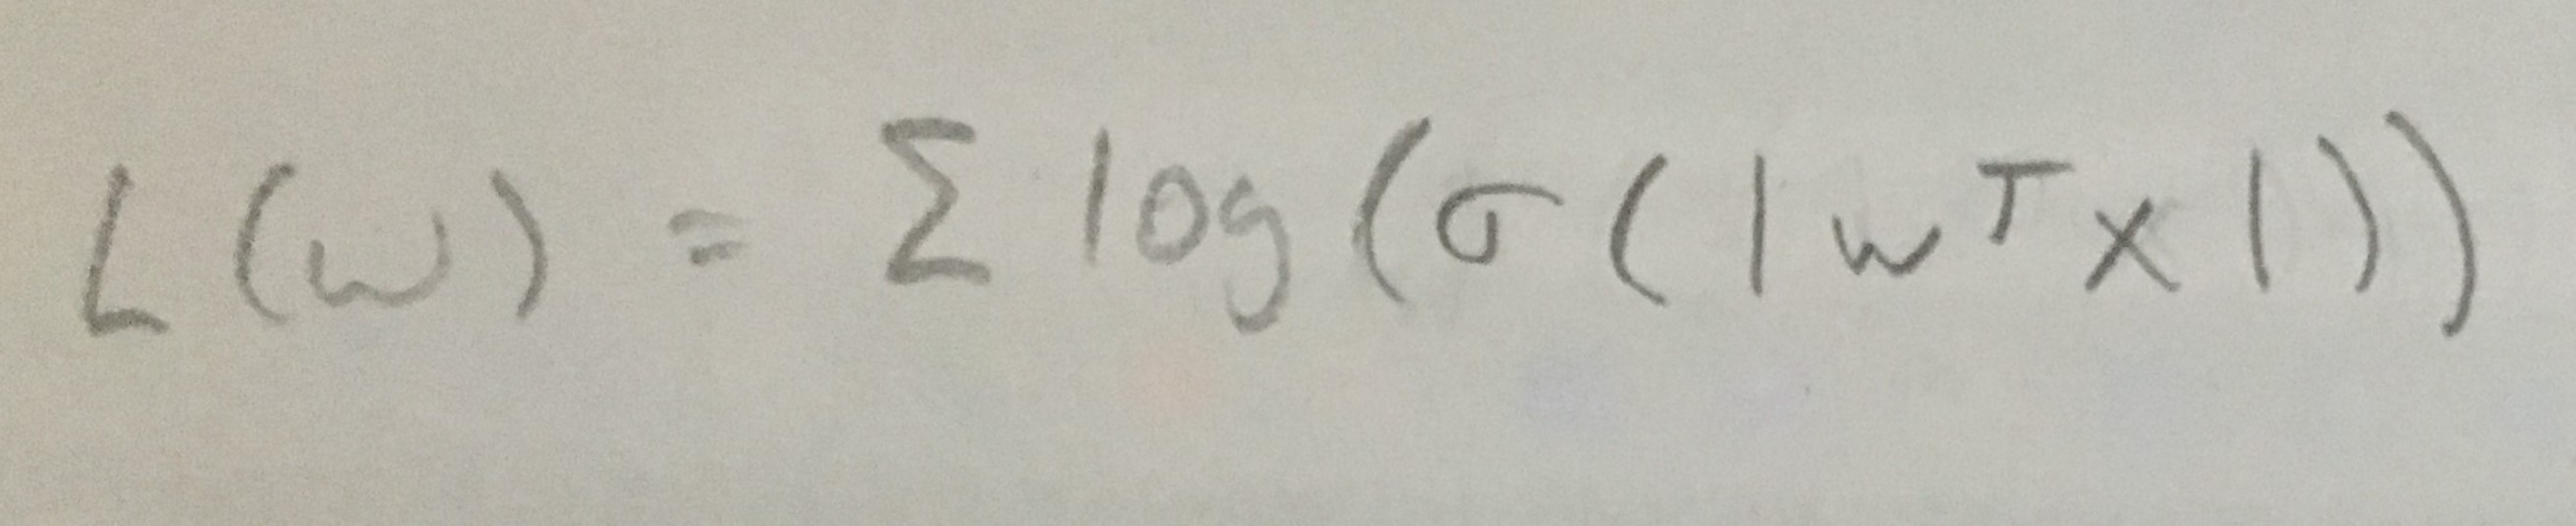 L(w) = Σ log(σ(|wᵀx|))